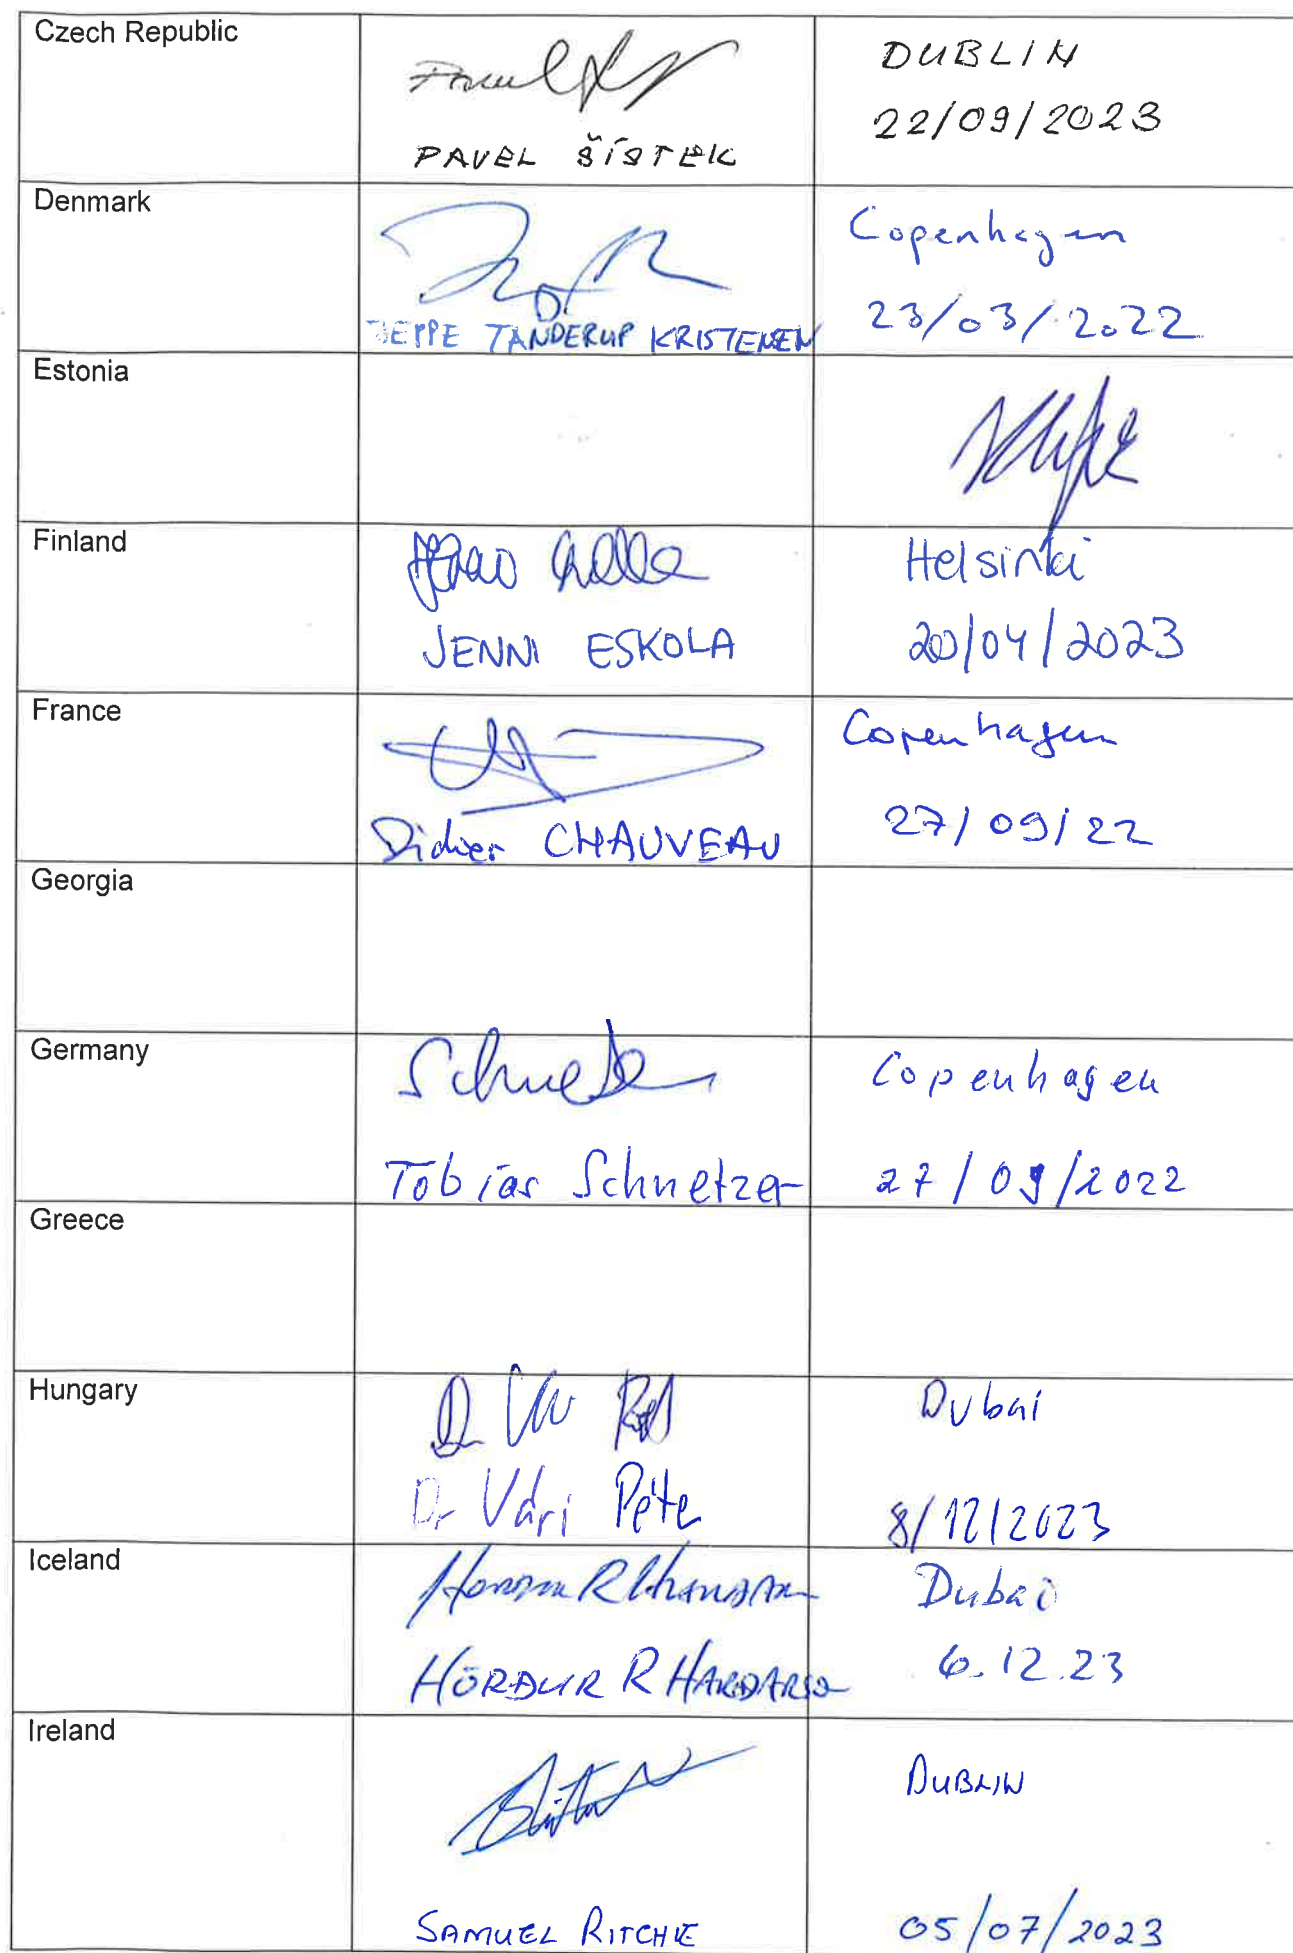 Czech Republic
PAVEL ŠÍSTEK
DUBLIN
22/09/2023
Denmark
JEPPE TANDERUP KRISTENSEN
Copenhagen
23/03/2022
Estonia
Finland
JENNI ESKOLA
Helsinki
20/04/2023
France
Didier CHAUVEAU
Copenhagen
27/09/22
Georgia
Germany
Tobias Schnetzer
Copenhagen
27/09/2022
Greece
Hungary
Dr Vári Péte
Dubai
8/12/2023
Iceland
HÖRÐUR R HARÐARSON
Dubai
6.12.23
Ireland
SAMUEL RITCHIE
DUBLIN
05/07/2023